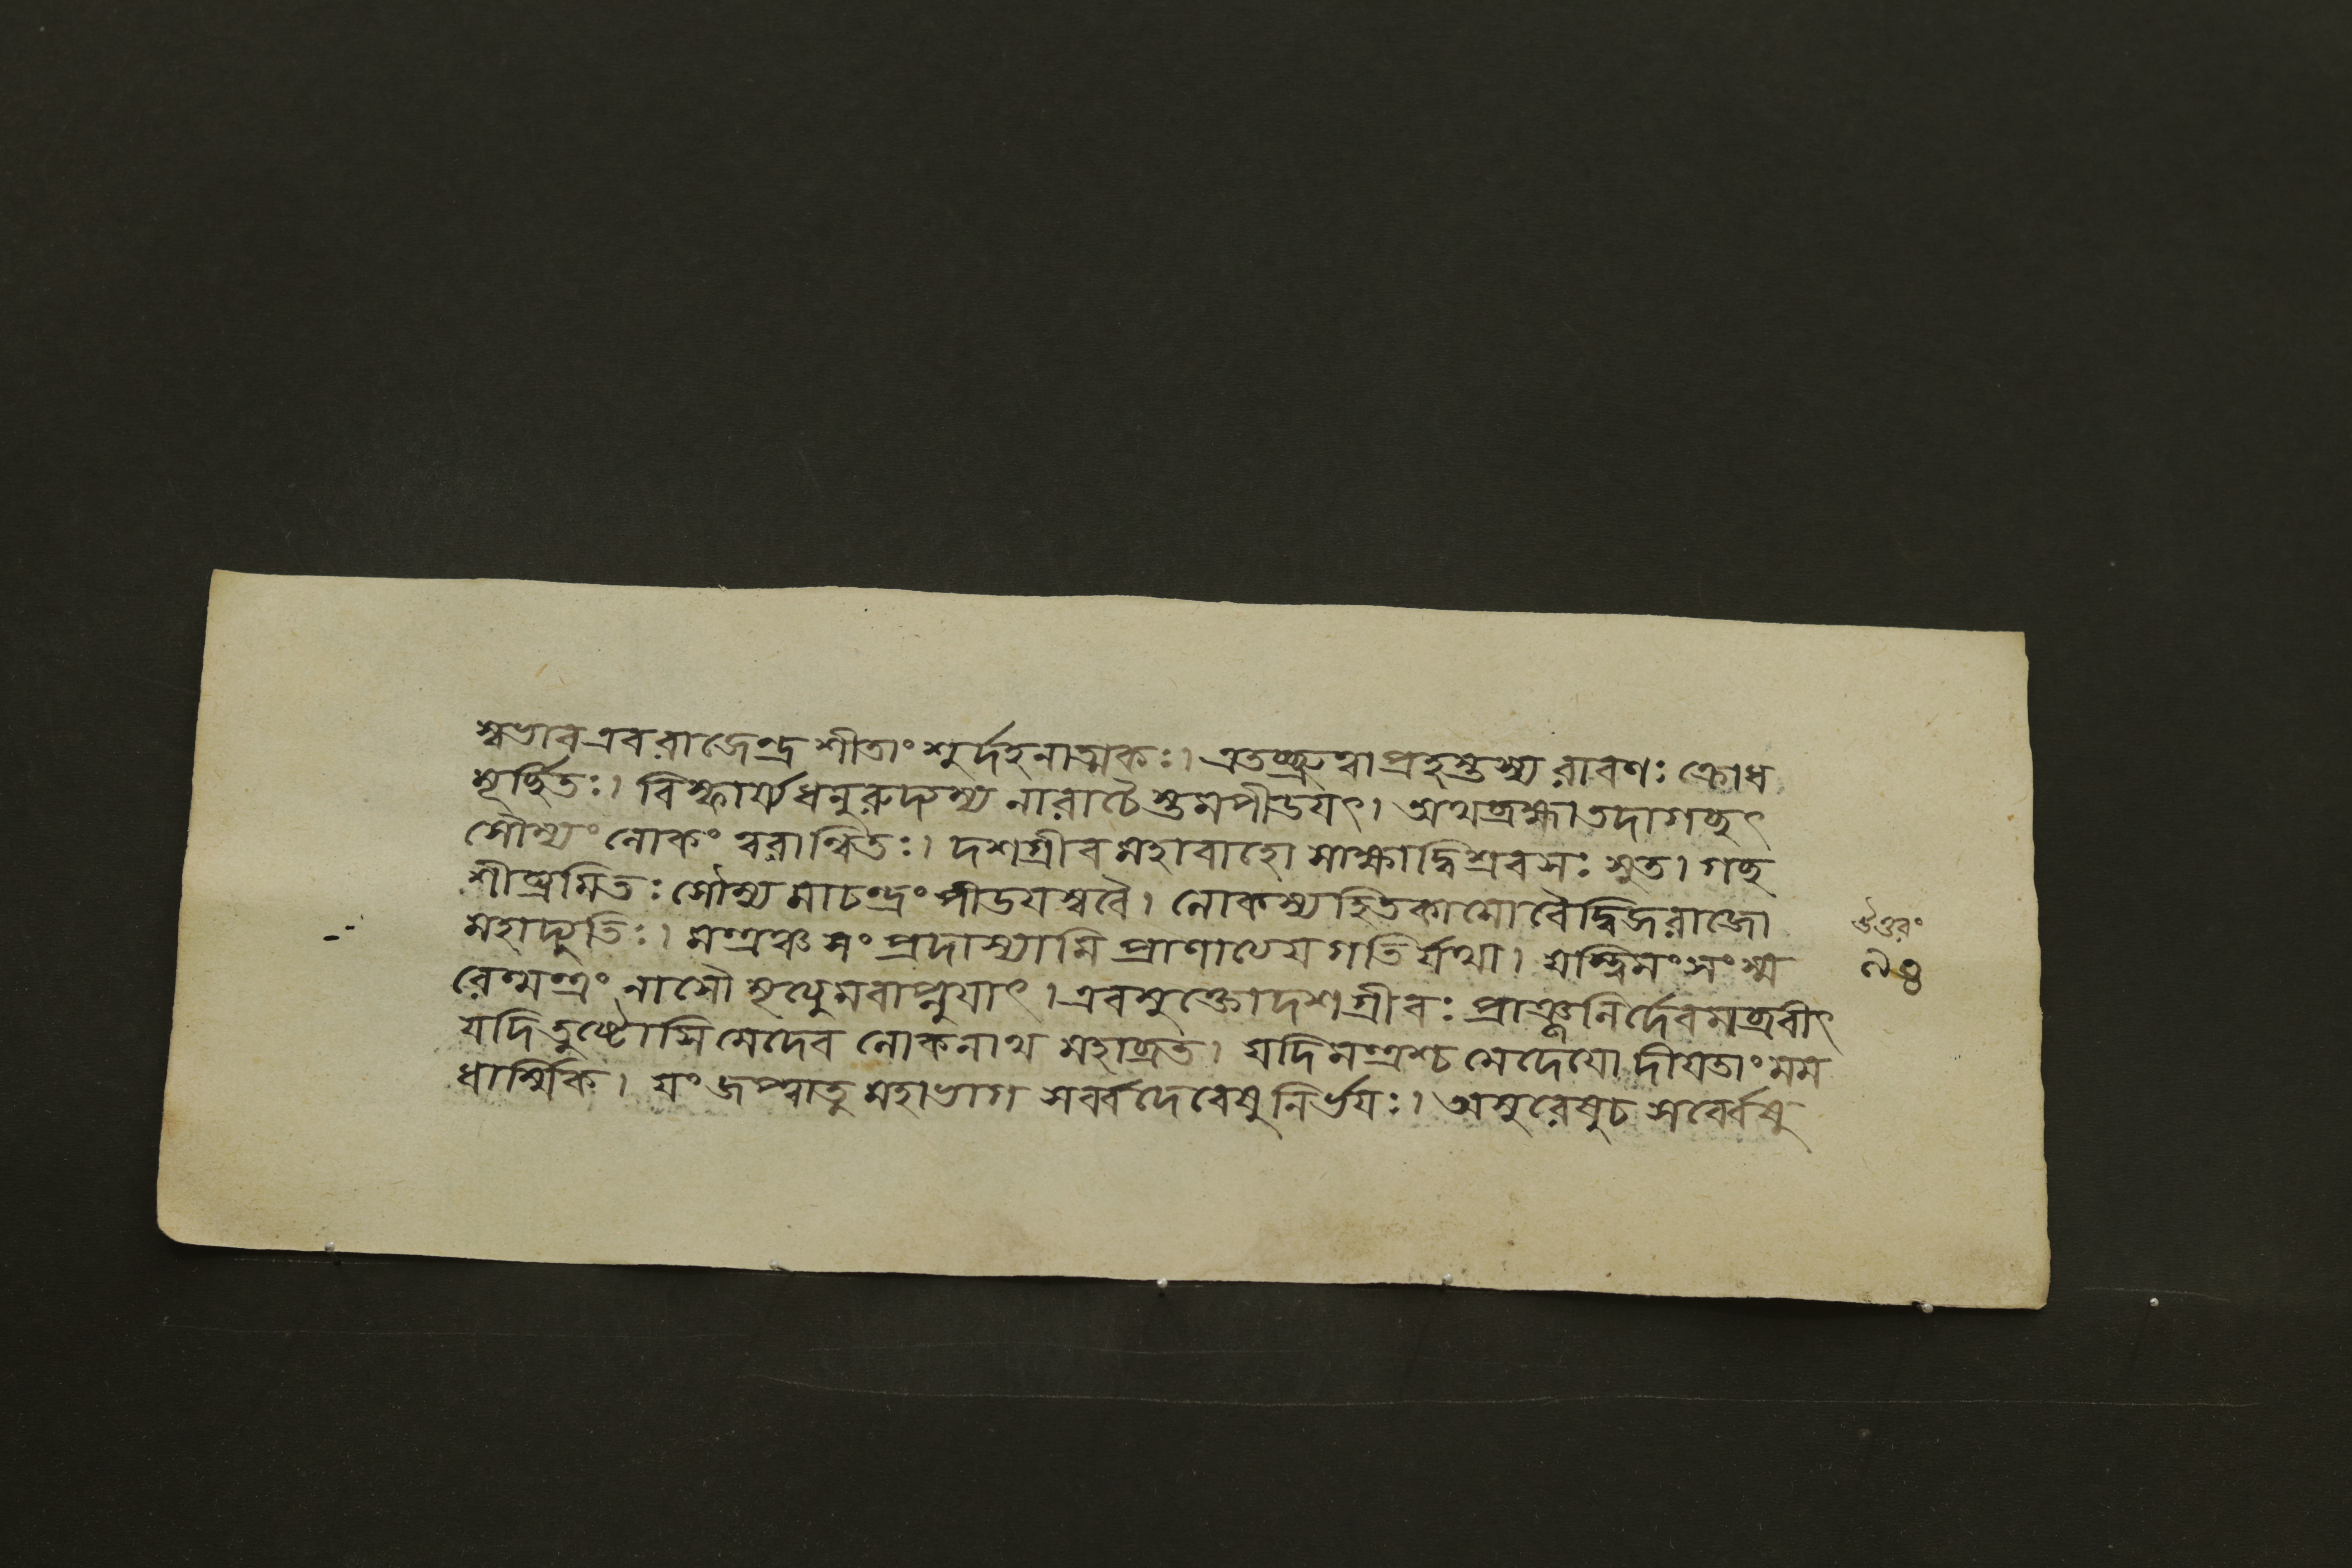 স্বভাব এব রাজেন্দ্র শীতাংশুর্দহনাত্মকঃ। এতচ্ছ্রুত্বা প্রহস্তস্য রাবণঃ ক্রোধ
মূর্চ্ছিতঃ। বিস্ফার্য্য ধনুরুদ্যম্য নারাচৈস্তমপীডযৎ। অথ ব্রহ্মা তদাগচ্ছৎ
সৌম্যং লোকং ত্বরান্বিতঃ। দশগ্রীব মহাবাহো সাক্ষাদ্বিশ্রবসঃ সুত। গচ্ছ
শীঘ্রমিতঃ সৌম্য মা চন্দ্রং পীডযস্ব বৈ। লোকস্য হিতকামো বৈ দ্বিজরাজো
মহাদ্যুতিঃ। মন্ত্রঞ্চ সংপ্রদাস্যামি প্রাণাত্যেয গতির্যথা। যস্ত্বিমং সংস্ম
রেন্মন্ত্রং নাসৌ মৃত্যুমবাপ্নুযাৎ। এবমুক্তো দশগ্রীবঃ প্রাঞ্জলির্দেবমব্রবীৎ
যদি তুষ্টোসি মে দেব লোকনাথ মহাব্রত। যদি মন্ত্রশ্চ মে দেযো দীযতাং মম
ধার্ম্মিক। যং জপ্ত্বা তু মহাভাগ সর্ব্বদেবেষু নির্ভযঃ। অসুরেষু চ সর্ব্বেষু
উত্তরং
৯৪